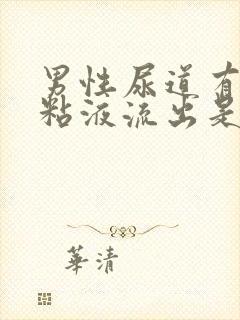 男性尿道有
粘液流出是
華清